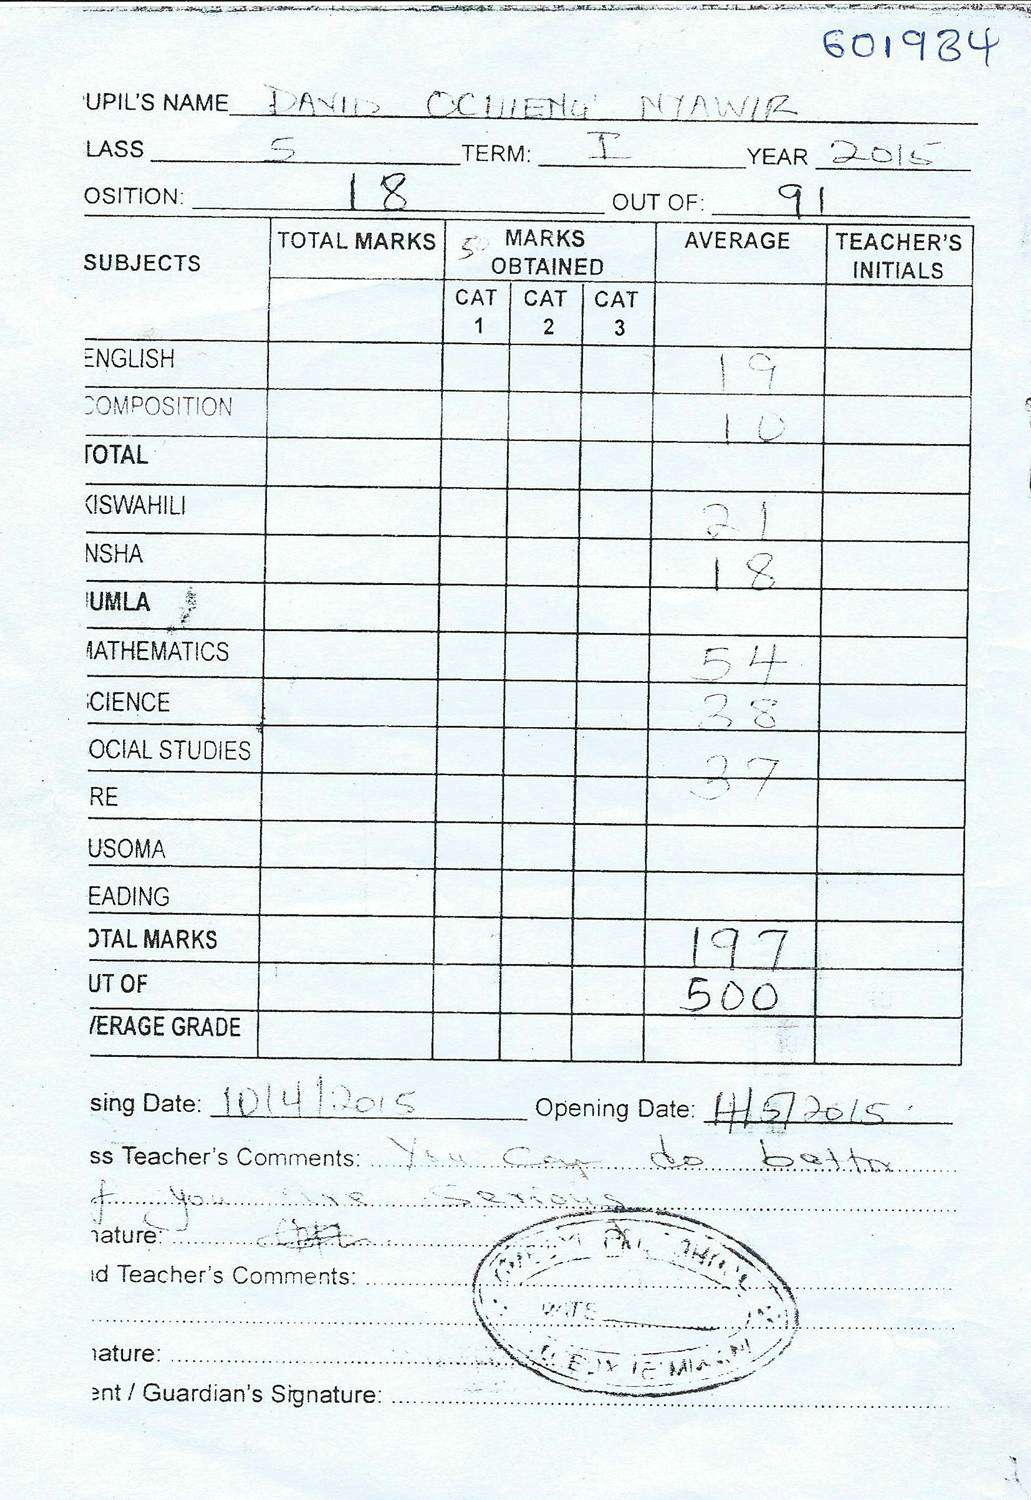 601934
UPIL'S NAME DAVID OCHIENG' NYAWIR
LASS 5 TERM: I YEAR 2015
OSITION: 18 OUT OF: 91
SUBJECTS TOTAL MARKS 50 MARKS OBTAINED AVERAGE TEACHER'S INITIALS
CAT 1 CAT 2 CAT 3
ENGLISH 19
COMPOSITION 10
TOTAL
KISWAHILI 21
NSHA 18
UMLA
MATHEMATICS 54
CIENCE 38
OCIAL STUDIES 37
RE
USOMA
EADING
OTAL MARKS 197
UT OF 500
VERAGE GRADE
sing Date: 10/4/2015 Opening Date: 4/5/2015
ss Teacher's Comments: You can do better
if you are serious
nature:
id Teacher's Comments:
DATE
nature:
ent / Guardian's Signature: